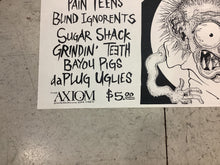 PAIN TEENS
BLIND IGNORENTS
SUGAR SHACK
GRINDIN' TEETH
BAYOU PIGS
da PLUG UGLIES
AXIOM $5.00